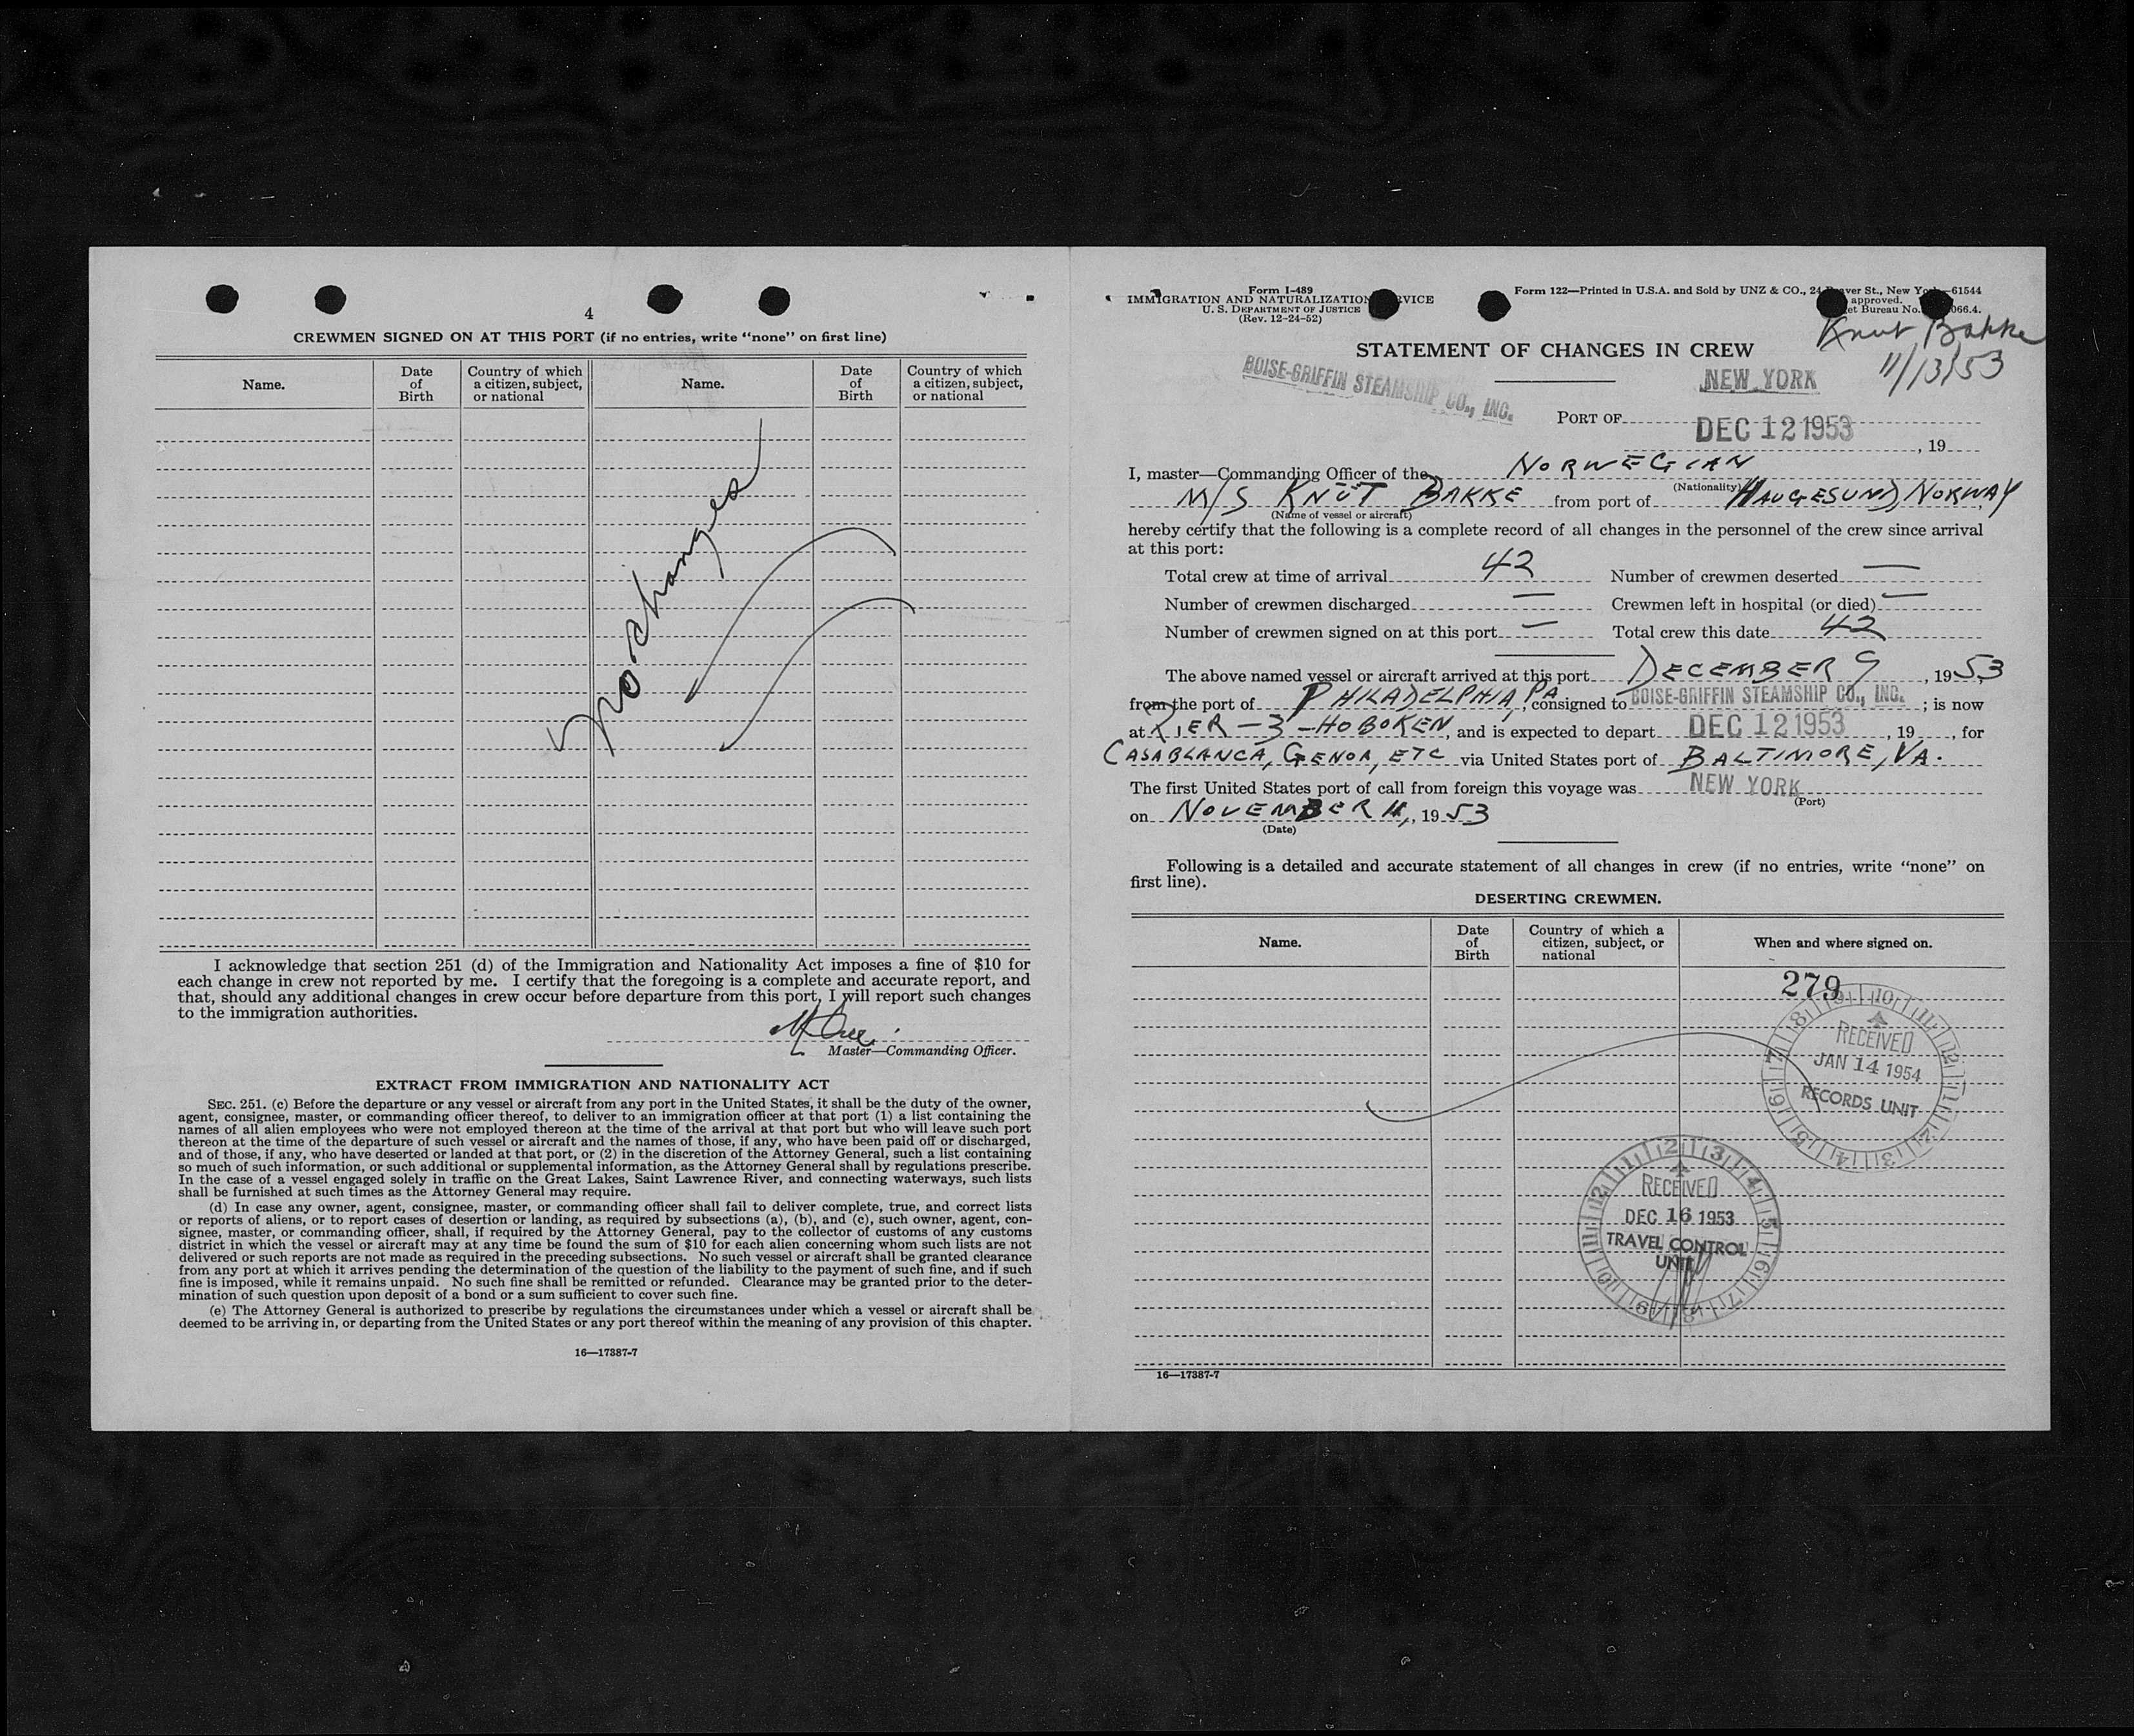 4
CREWMEN SIGNED ON AT THIS PORT (if no entries, write "none" on first line)
Name. Date of Birth Country of which a citizen, subject, or national Name. Date of Birth Country of which a citizen, subject, or national
no changes
I acknowledge that section 251 (d) of the Immigration and Nationality Act imposes a fine of $10 for
each change in crew not reported by me. I certify that the foregoing is a complete and accurate report, and
that, should any additional changes in crew occur before departure from this port, I will report such changes
to the immigration authorities.
Master—Commanding Officer.
EXTRACT FROM IMMIGRATION AND NATIONALITY ACT
SEC. 251. (c) Before the departure or any vessel or aircraft from any port in the United States, it shall be the duty of the owner,
agent, consignee, master, or commanding officer thereof, to deliver to an immigration officer at that port (1) a list containing the
names of all alien employees who were not employed thereon at the time of the arrival at that port but who will leave such port
thereon at the time of the departure of such vessel or aircraft and the names of those, if any, who have been paid off or discharged,
and of those, if any, who have deserted or landed at that port, or (2) in the discretion of the Attorney General, such a list containing
so much of such information, or such additional or supplemental information, as the Attorney General shall by regulations prescribe.
In the case of a vessel engaged solely in traffic on the Great Lakes, Saint Lawrence River, and connecting waterways, such lists
shall be furnished at such times as the Attorney General may require.
(d) In case any owner, agent, consignee, master, or commanding officer shall fail to deliver complete, true, and correct lists
or reports of aliens, or to report cases of desertion or landing, as required by subsections (a), (b), and (c), such owner, agent, con-
signee, master, or commanding officer, shall, if required by the Attorney General, pay to the collector of customs of any customs
district in which the vessel or aircraft may at any time be found the sum of $10 for each alien concerning whom such lists are not
delivered or such reports are not made as required in the preceding subsections. No such vessel or aircraft shall be granted clearance
from any port at which it arrives pending the determination of the question of the liability to the payment of such fine, and if such
fine is imposed, while it remains unpaid. No such fine shall be remitted or refunded. Clearance may be granted prior to the deter-
mination of such question upon deposit of a bond or a sum sufficient to cover such fine.
(e) The Attorney General is authorized to prescribe by regulations the circumstances under which a vessel or aircraft shall be
deemed to be arriving in, or departing from the United States or any port thereof within the meaning of any provision of this chapter.
16—17387-7
Form I-489
IMMIGRATION AND NATURALIZATION
U. S. DEPARTMENT OF JUSTICE
(Rev. 12-24-52)
Form 122—Printed in U.S.A. and Sold by UNZ & CO., 24 St., New York—61544
approved.
Bureau No. 066.4.
Knut Bakke
11/13/53
STATEMENT OF CHANGES IN CREW
BOISE-GRIFFIN STEAMSHIP CO., INC.
NEW YORK
PORT OF
DEC 12 1953 , 19
I, master—Commanding Officer of the NORWEGIAN
(Nationality)
M/S KNUT BAKKE from port of HAUGESUND, NORWAY
(Name of vessel or aircraft)
hereby certify that the following is a complete record of all changes in the personnel of the crew since arrival
at this port:
Total crew at time of arrival 42 Number of crewmen deserted —
Number of crewmen discharged — Crewmen left in hospital (or died) —
Number of crewmen signed on at this port — Total crew this date 42
The above named vessel or aircraft arrived at this port DECEMBER 9, 1953
from the port of PHILADELPHIA, PA; consigned to BOISE-GRIFFIN STEAMSHIP CO., INC.; is now
at PIER — 3 — HOBOKEN, and is expected to depart DEC 12 1953, 19, for
CASABLANCA, GENOA, ETC via United States port of BALTIMORE, VA.
The first United States port of call from foreign this voyage was NEW YORK
(Port)
on NOVEMBER 11, 1953
(Date)
Following is a detailed and accurate statement of all changes in crew (if no entries, write "none" on
first line).
DESERTING CREWMEN.
Name. Date of Birth Country of which a citizen, subject, or national When and where signed on.
279
RECEIVED
JAN 14 1954
RECORDS UNIT
RECEIVED
DEC 16 1953
TRAVEL CONTROL
UNIT
16—17387-7